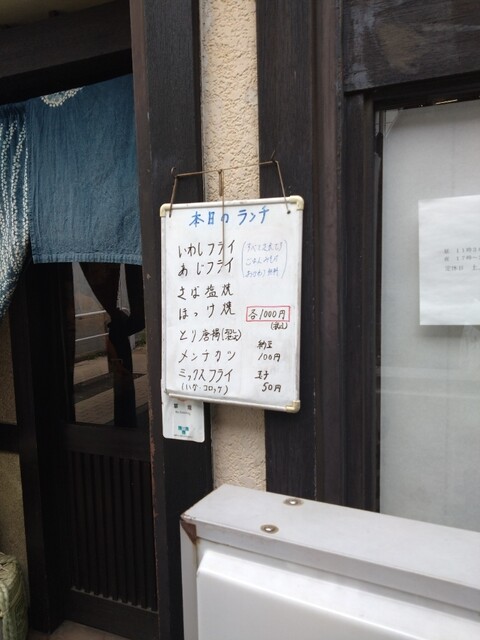 本日のランチ
いわしフライ
あじフライ
すべて定食です
ごはんみそ汁
おかわり無料
さば塩焼
ほっけ焼
各1000円
(税込)
とり唐揚
メンチカツ
ミックスフライ
(ハケ・コロッケ)
納豆
100円
玉子
50円